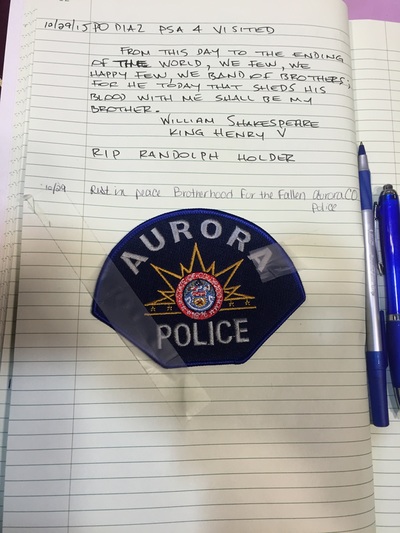 10/29/15 PO DIAZ PSA 4 VISITED
FROM THIS DAY TO THE ENDING
OF THE WORLD, WE FEW, WE
HAPPY FEW, WE BAND OF BROTHERS;
FOR HE TODAY THAT SHEDS HIS
BLOOD WITH ME SHALL BE MY
BROTHER.
WILLIAM SHAKESPEARE
KING HENRY V
RIP RANDOLPH HOLDER
10/29 Rest in peace Brotherhood for the Fallen Aurora CO
Police
AURORA
POLICE